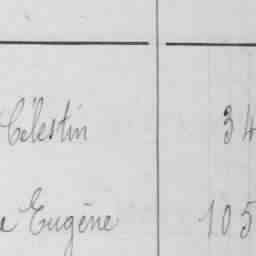 Célestin 34
e Eugène 105